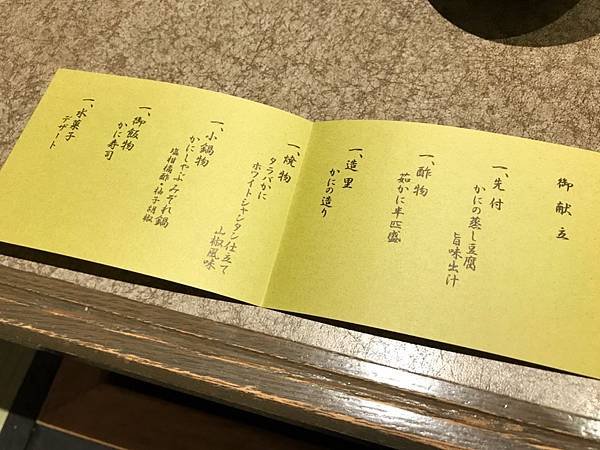 御献立
一、先付
かにの蒸し豆腐
旨味出汁
一、酢物
茹かに半匹盛
一、造里
かにの造り
一、焼物
タラバかに
ホワイトシャンタン仕立て
山椒風味
一、小鍋物
かにしゃぶみぞれ鍋
塩柑橘酢・柚子胡椒
一、御飯物
かに寿司
一、水菓子
デザート